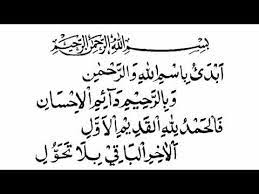 بِسْمِ اللهِ الرَّحْمٰنِ الرَّحِيْمِ
اَبْدَئُ بِاسْمِ اللهِ وَالرَّحْمٰنِ
وَبِالرَّحِيْمِ دَآئِمِ الْاِحْسَانِ
فَالْحَمْدُ لِلّٰهِ الْقَدِيْمِ الْاَوَّلِ
اَلْاٰخِرِ الْبَاقِيْ بِلَا تَحَوُّلِ